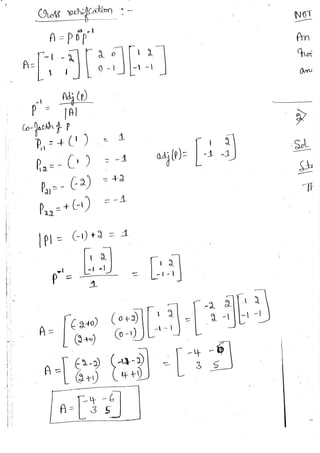 Cross verification :-
A = P D P⁻¹
A = [-1 -2; 1 1] [2 0; 0 -1] [1 2; -1 -1]
P⁻¹ = Adj(P) / |A|
Co-factor of P
P₁₁ = +(1) = 1
P₁₂ = -(1) = -1
adj(P) = [1 2; -1 -1]
P₂₁ = -(-2) = +2
P₂₂ = +(-1) = -1
|P| = (-1) + 2 = 1
P⁻¹ = [1 2; -1 -1] / 1 = [1 2; -1 -1]
A = [(-2+0) (0+2); (2+0) (0-1)] [1 2; -1 -1] = [-2 2; 2 -1] [1 2; -1 -1]
A = [(-2-2) (-4-2); (2+1) (4+1)] = [-4 -6; 3 5]
A = [-4 -6; 3 5]
NOT
An
2)
Sol